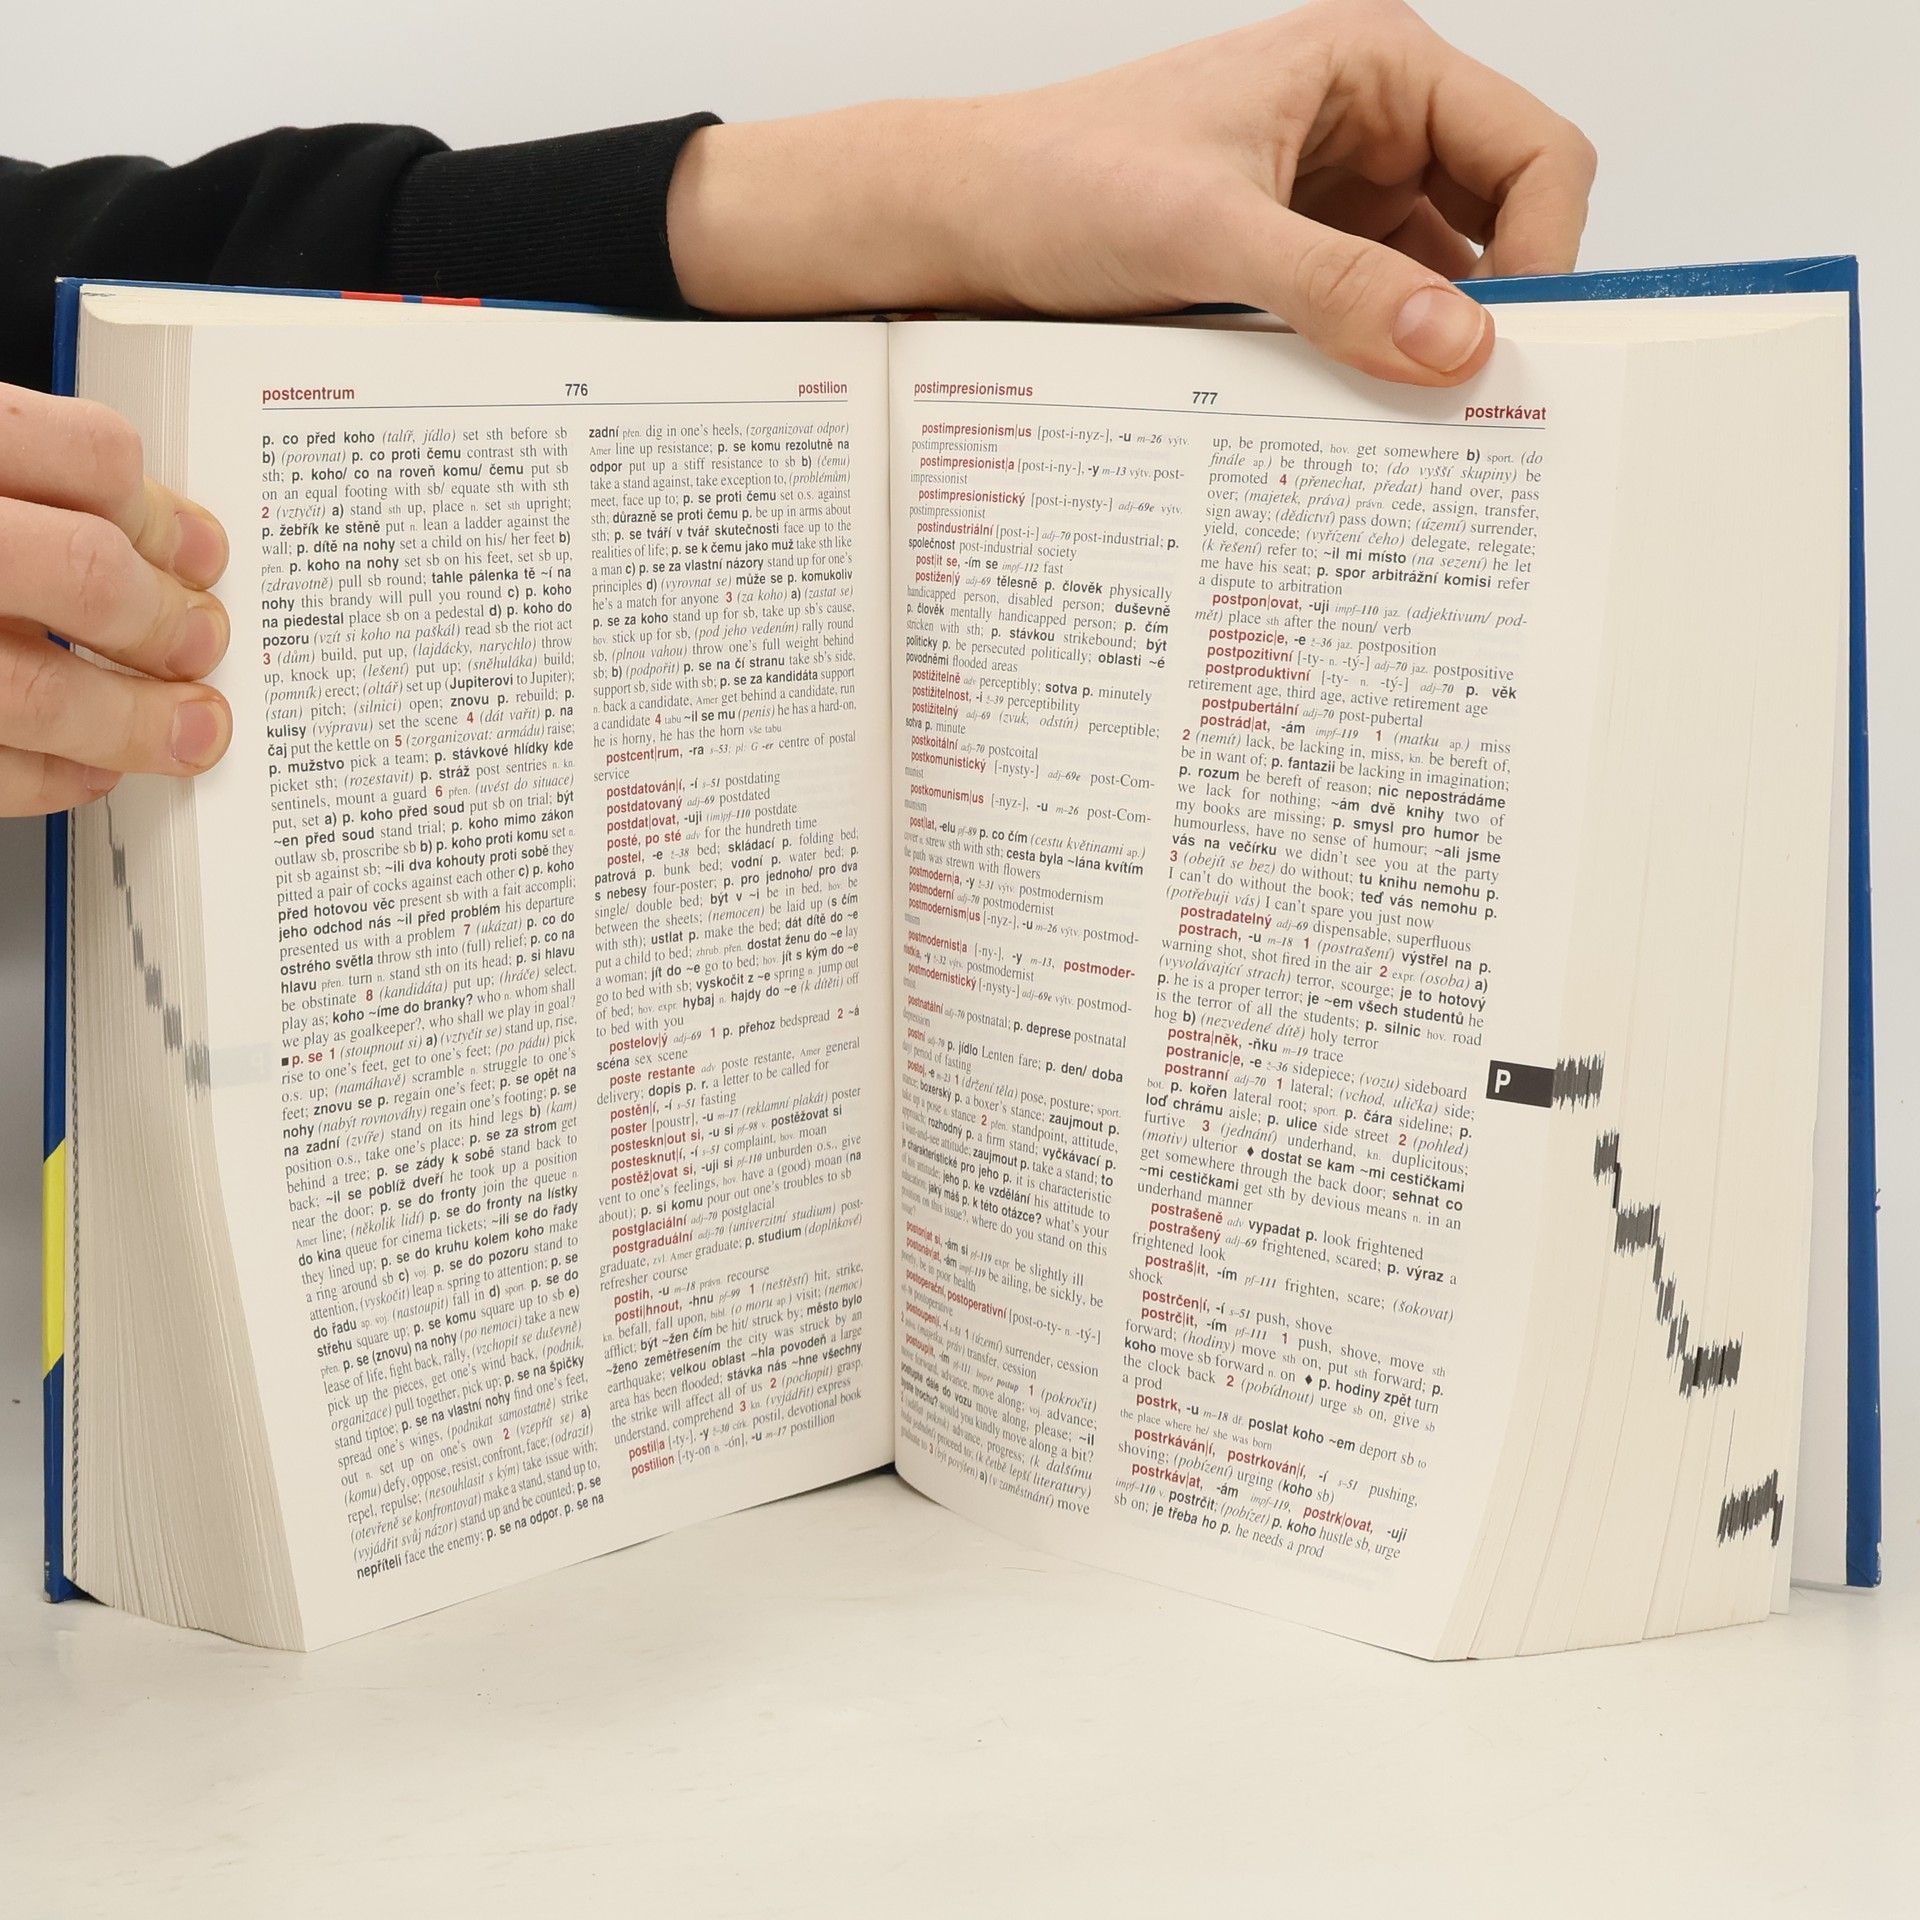 postcentrum 776 postilion
p. co před koho (talíř, jídlo) set sth before sb
b) (porovnat) p. co proti čemu contrast sth with
sth; p. koho/ co na roveň komu/ čemu put sb
on an equal footing with sb/ equate sth with sth
2 (vztyčit) a) stand sth up, place n. set sth upright;
p. žebřík ke stěně put n. lean a ladder against the
wall; p. dítě na nohy set a child on his/ her feet b)
přen. p. koho na nohy set sb on his feet, set sb up,
(zdravotně) pull sb round; tahle pálenka tě ~í na
nohy this brandy will pull you round c) p. koho
na piedestal place sb on a pedestal d) p. koho do
pozoru (vzít si koho na paškál) read sb the riot act
3 (dům) build, put up, (lajdácky, narychlo) throw
up, knock up; (lešení) put up; (sněhuláka) build;
(pomník) erect; (oltář) set up (Jupiterovi to Jupiter);
(stan) pitch; (silnici) open; znovu p. rebuild; p.
kulisy (výpravu) set the scene 4 (dát vařit) p. na
čaj put the kettle on 5 (zorganizovat: armádu) raise;
p. mužstvo pick a team; p. stávkové hlídky kde
picket sth; (rozestavit) p. stráž post sentries n. kn.
sentinels, mount a guard 6 přen. (uvést do situace)
put, set a) p. koho před soud put sb on trial; být
~en před soud stand trial; p. koho mimo zákon
outlaw sb, proscribe sb b) p. koho proti komu set n.
pit sb against sb; ~ili dva kohouty proti sobě they
pitted a pair of cocks against each other c) p. koho
před hotovou věc present sb with a fait accompli;
jeho odchod nás ~il před problém his departure
presented us with a problem 7 (ukázat) p. co do
ostrého světla throw sth into (full) relief; p. co na
hlavu přen. turn n. stand sth on its head; p. si hlavu
be obstinate 8 (kandidáta) put up; (hráče) select,
play as; koho ~íme do branky? who n. whom shall
we play as goalkeeper?, who shall we play in goal?
■ p. se 1 (stoupnout si) a) (vztyčit se) stand up, rise,
rise to one's feet, get to one's feet; (po pádu) pick
o.s. up; (namáhavě) scramble n. struggle to one's
feet; znovu se p. regain one's feet; p. se opět na
nohy (nabýt rovnováhy) regain one's footing; p. se
na zadní (zvíře) stand on its hind legs b) (kam)
position o.s., take one's place; p. se za strom get
behind a tree; p. se zády k sobě stand back to
back; ~il se poblíž dveří he took up a position
near the door; p. se do fronty join the queue n.
Amer line; (několik lidí) p. se do fronty na lístky
do kina queue for cinema tickets; ~ili se do řady
they lined up; p. se do kruhu kolem koho make
a ring around sb c) voj. p. se do pozoru stand to
attention, (vyskočit) leap n. spring to attention; p. se
do řadu ap. voj. (nastoupit) fall in d) sport. p. se do
střehu square up; p. se komu square up to sb e)
přen. p. se (znovu) na nohy (po nemoci) take a new
lease of life, fight back, rally, (vzchopit se duševně)
pick up the pieces, get one's wind back, (podnik,
organizace) pull together, pick up; p. se na špičky
stand tiptoe; p. se na vlastní nohy find one's feet,
spread one's wings, (podnikat samostatně) strike
out n. set up on one's own 2 (vzepřít se) a)
(komu) defy, oppose, resist, confront, face, (odrazit)
repel, repulse; (nesouhlasit s kým) take issue with;
(otevřeně se konfrontovat) make a stand, stand up to,
(vyjádřit svůj názor) stand up and be counted; p. se
nepříteli face the enemy; p. se na odpor, p. se na
zadní přen. dig in one's heels, (zorganizovat odpor)
Amer line up resistance; p. se komu rezolutně na
odpor put up a stiff resistance to sb b) (čemu)
take a stand against, take exception to, (problémům)
meet, face up to; p. se proti čemu set o.s. against
sth; důrazně se proti čemu p. be up in arms about
sth; p. se tváří v tvář skutečnosti face up to the
realities of life; p. se k čemu jako muž take sth like
a man c) p. se za vlastní názory stand up for one's
principles d) (vyrovnat se) může se p. komukoliv
he's a match for anyone 3 (za koho) a) (zastat se)
p. se za koho stand up for sb, take up sb's cause,
hov. stick up for sb, (pod jeho vedením) rally round
sb, (plnou vahou) throw one's full weight behind
sb; b) (podpořit) p. se na čí stranu take sb's side,
support sb, side with sb; p. se za kandidáta support
n. back a candidate, Amer get behind a candidate, run
a candidate 4 tabu ~il se mu (penis) he has a hard-on,
he is horny, he has the horn vše tabu
postcent|rum, -ra s–53; pl: G -er centre of postal
service
postdatován|í, -í s–51 postdating
postdatovaný adj–69 postdated
postdat|ovat, -uji (im)pf–110 postdate
posté, po sté adv for the hundreth time
postel, -e ž–38 bed; skládací p. folding bed;
patrová p. bunk bed; vodní p. water bed; p.
s nebesy four-poster; p. pro jednoho/ pro dva
single/ double bed; být v ~i be in bed, hov. be
between the sheets; (nemocen) be laid up (s čím
with sth); ustlat p. make the bed; dát dítě do ~e
put a child to bed; zhrub. přen. dostat ženu do ~e lay
a woman; jít do ~e go to bed; hov. jít s kým do ~e
go to bed with sb; vyskočit z ~e spring n. jump out
of bed; hov. expr. hybaj n. hajdy do ~e (k dítěti) off
to bed with you
postelov|ý adj–69 1 p. přehoz bedspread 2 ~á
scéna sex scene
poste restante adv poste restante, Amer general
delivery; dopis p. r. a letter to be called for
postěn|í, -í s–51 fasting
poster [poustr], -u m–17 (reklamní plakát) poster
posteskn|out si, -u si pf–98 v. postěžovat si
postesknut|í, -í s–51 complaint, hov. moan
postěž|ovat si, -uji si pf–110 unburden o.s., give
vent to one's feelings, hov. have a (good) moan (na
about); p. si komu pour out one's troubles to sb
postglaciální adj–70 postglacial
postgraduální adj–70 (univerzitní studium) post-
graduate, zvl. Amer graduate; p. studium (doplňkové)
refresher course
postih, -u m–18 práv. recourse
posti|hnout, -hnu pf–99 1 (neštěstí) hit, strike,
kn. befall, fall upon, bibl. (o moru ap.) visit; (nemoc)
afflict; být ~žen čím be hit/ struck by; město bylo
~ženo zemětřesením the city was struck by an
earthquake; velkou oblast ~hla povodeň a large
area has been flooded; stávka nás ~hne všechny
the strike will affect all of us 2 (pochopit) grasp,
understand, comprehend 3 kn. (vyjádřit) express
postil|a [-ty-], -y ž–30 círk. postil, devotional book
postilion [-ty-on n. -ón], -u m–17 postillion
postimpresionismus 777 postrkávat
postimpresionism|us [post-i-nyz-], -u m–26 výtv.
postimpressionism
postimpresionist|a [post-i-ny-], -y m–13 výtv. post-
impressionist
postimpresionistický [post-i-nysty-] adj–69e výtv.
postimpressionist
postindustriální [post-i-] adj–70 post-industrial; p.
společnost post-industrial society
post|it se, -ím se impf–112 fast
postižen|ý adj–69 tělesně p. člověk physically
handicapped person, disabled person; duševně
p. člověk mentally handicapped person; p. čím
stricken with sth; p. stávkou strikebound; být
politicky p. be persecuted politically; oblasti ~é
povodněmi flooded areas
postižitelně adv perceptibly; sotva p. minutely
postižitelnost, -i ž–39 perceptibility
postižitelný adj–69 (zvuk, odstín) perceptible;
sotva p. minute
postkoitální adj–70 postcoital
postkomunistický [-nysty-] adj–69e post-Com-
munist
postkomunism|us [-nyz-], -u m–26 post-Com-
munism
post|lat, -elu pf–89 p. co čím (cestu květinami ap.)
cover n. strew sth with sth; cesta byla ~lána kvítím
the path was strewn with flowers
postmodern|a, -y ž–31 výtv. postmodernism
postmoderní adj–70 postmodernist
postmodernism|us [-nyz-], -u m–26 výtv. postmod-
ernism
postmodernist|a [-ny-], -y m–13, postmoder-
nistka, -y ž–32 výtv. postmodernist
postmodernistický [-nysty-] adj–69e výtv. postmod-
ernist
postnatální adj–70 postnatal; p. deprese postnatal
depression
postní adj–70 p. jídlo Lenten fare; p. den/ doba
day/ period of fasting
postoj, -e m–23 1 (držení těla) pose, posture; sport.
stance; boxerský p. a boxer's stance; zaujmout p.
take up a pose n. stance 2 přen. standpoint, attitude,
approach; rozhodný p. a firm stand; vyčkávací p.
a wait-and-see attitude; zaujmout p. take a stand; to
je charakteristické pro jeho p. it is characteristic
of his attitude; jeho p. ke vzdělání his attitude to
education; jaký máš p. k této otázce? what's your
position on this issue?, where do you stand on this
issue?
postoň|at si, -ám si pf–119 expr. be slightly ill
postonáv|at, -ám impf–119 be ailing, be sickly, be
poorly, be in poor health
postoperační, postoperativní [post-o-ty- n. -tý-]
postoperative
postoupen|í, -í s–51 1 (území) surrender, cession
transfer, cession
postoupit, -ím pf–111, imper postup 1 (pokročit)
move forward, advance, move along; voj. advance;
postupte dále do vozu move along, please; ~il
byste trochu? would you kindly move along a bit?
advance, progress; (k dalšímu
proceed to; (k četbě lepší literatury)
graduate to 3 (být povýšen) a) (v zaměstnání) move
up, be promoted, hov. get somewhere b) sport. (do
finále ap.) be through to; (do vyšší skupiny) be
promoted 4 (přenechat, předat) hand over, pass
over; (majetek, práva) právn. cede, assign, transfer,
sign away; (dědictví) pass down; (území) surrender,
yield, concede; (vyřízení čeho) delegate, relegate;
(k řešení) refer to; ~il mi místo (na sezení) he let
me have his seat; p. spor arbitrážní komisi refer
a dispute to arbitration
postpon|ovat, -uji impf–110 jaz. (adjektivum/ pod-
mět) place sth after the noun/ verb
postpozic|e, -e ž–36 jaz. postposition
postpozitivní [-ty- n. -tý-] adj–70 jaz. postpositive
postproduktivní [-ty- n. -tý-] adj–70 p. věk
retirement age, third age, active retirement age
postpubertální adj–70 post-pubertal
postrád|at, -ám impf–119 1 (matku ap.) miss
2 (nemít) lack, be lacking in, miss, kn. be bereft of,
be in want of; p. fantazii be lacking in imagination;
p. rozum be bereft of reason; nic nepostrádáme
we lack for nothing; ~ám dvě knihy two of
my books are missing; p. smysl pro humor be
humourless, have no sense of humour; ~ali jsme
vás na večírku we didn't see you at the party
3 (obejít se bez) do without; tu knihu nemohu p.
I can't do without the book; teď vás nemohu p.
(potřebuji vás) I can't spare you just now
postradatelný adj–69 dispensable, superfluous
postrach, -u m–18 1 (postrašení) výstřel na p.
warning shot, shot fired in the air 2 expr. (osoba) a)
(vyvolávající strach) terror, scourge; je to hotový
p. he is a proper terror; je ~em všech studentů he
is the terror of all the students; p. silnic hov. road
hog b) (nezvedené dítě) holy terror
postra|něk, -ňku m–19 trace
postranic|e, -e ž–36 sidepiece; (vozu) sideboard
postranní adj–70 1 lateral; (vchod, ulička) side;
bot. p. kořen lateral root; sport. p. čára sideline; p.
loď chrámu aisle; p. ulice side street 2 (pohled)
furtive 3 (jednání) underhand, kn. duplicitous;
(motiv) ulterior ♦ dostat se kam ~mi cestičkami
get somewhere through the back door; sehnat co
~mi cestičkami get sth by devious means n. in an
underhand manner
postrašeně adv vypadat p. look frightened
postrašený adj–69 frightened, scared; p. výraz a
frightened look
postraš|it, -ím pf–111 frighten, scare; (šokovat)
shock
postrčen|í, -í s–51 push, shove
postrč|it, -ím pf–111 1 push, shove, move sth
forward; (hodiny) move sth on, put sth forward; p.
koho move sb forward n. on ♦ p. hodiny zpět turn
the clock back 2 (pobídnout) urge sb on, give sb
a prod
postrk, -u m–18 dř. poslat koho ~em deport sb to
the place where he/ she was born
postrkáván|í, postrkován|í, -í s–51 pushing,
shoving; (pobízení) urging (koho sb)
postrkáv|at, -ám impf–119, postrk|ovat, -uji
impf–110 v. postrčit; (pobízet) p. koho hustle sb, urge
sb on; je třeba ho p. he needs a prod
P